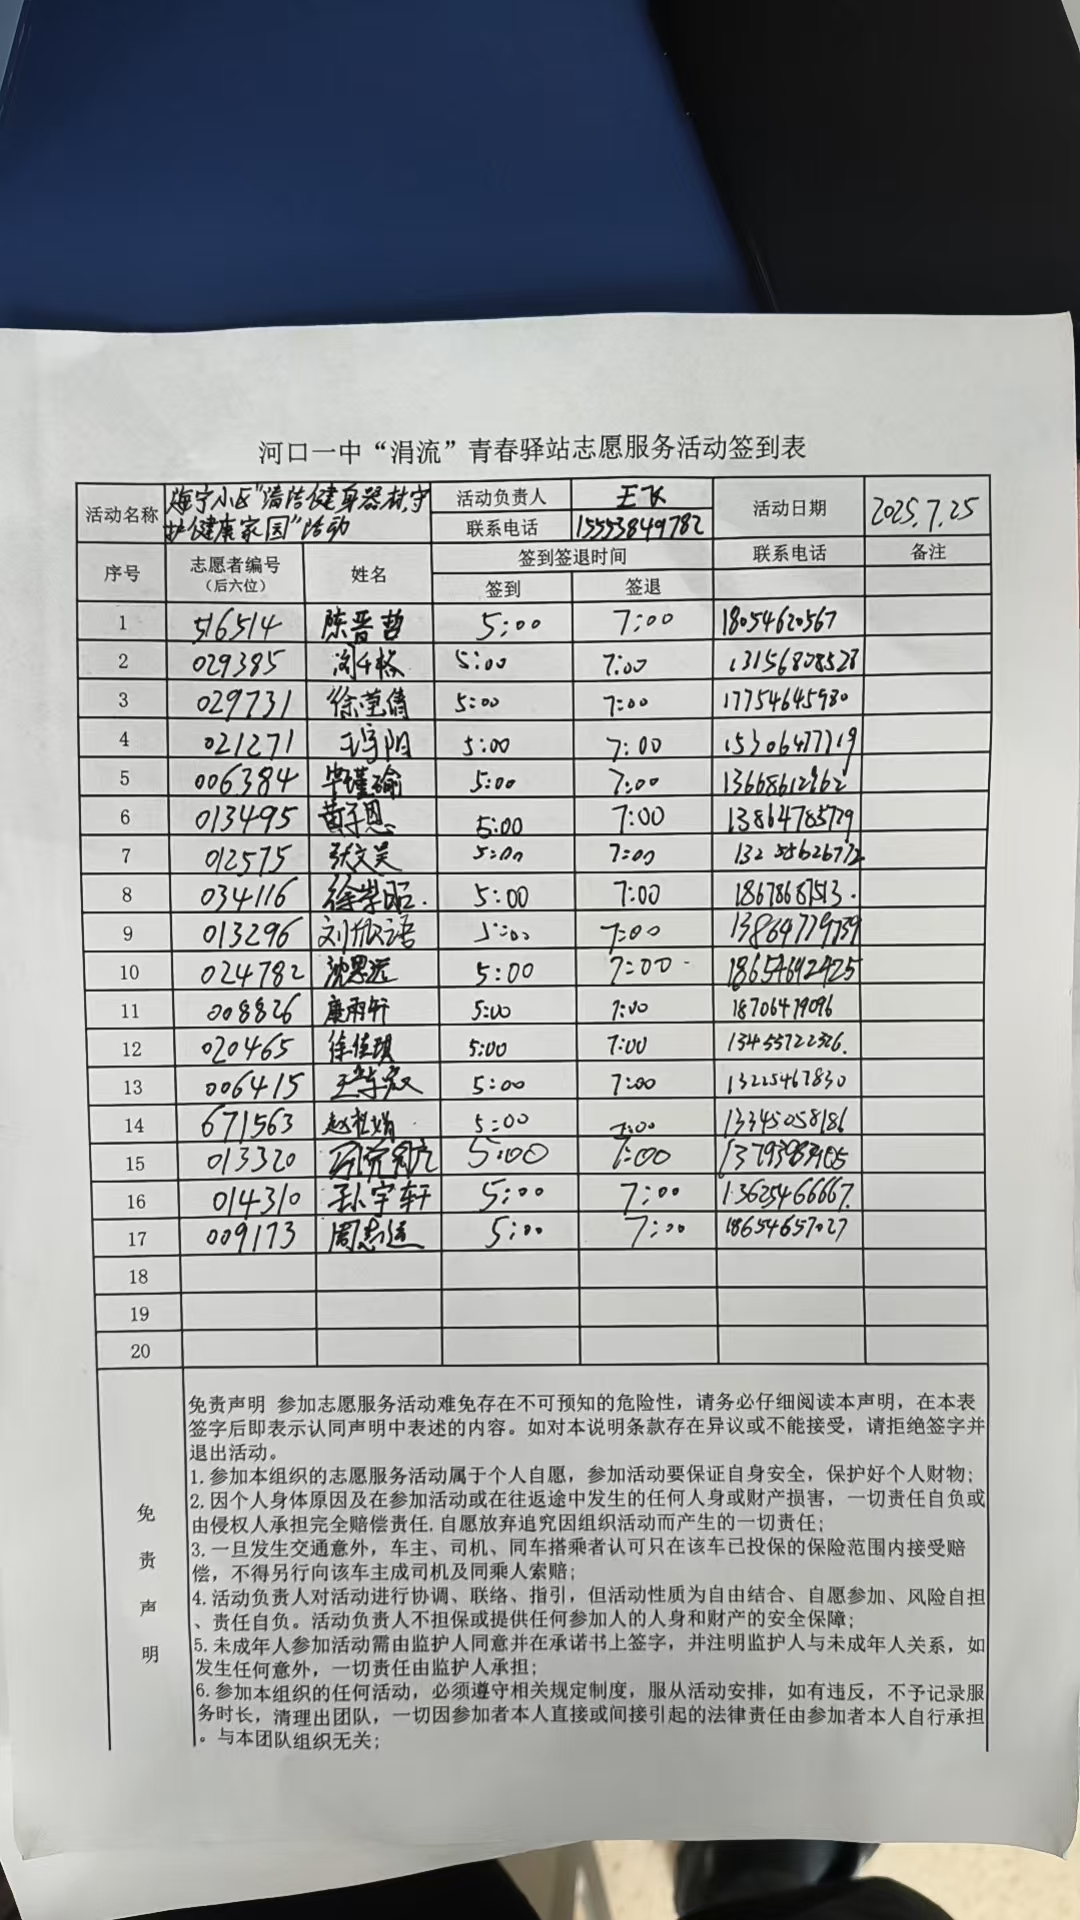 河口一中“涓流”青春驿站志愿服务活动签到表
活动名称 海宁小区“清洁健身器材,守护健康家园”活动 活动负责人 王飞 活动日期 2025.7.25
联系电话 15553849782
序号 志愿者编号（后六位） 姓名 签到签退时间 联系电话 备注
签到 签退
1 516514 陈晋哲 5:00 7:00 18054620567
2 029385 5:00 7:00 13156808528
3 029731 徐莹倩 5:00 7:00 17754645980
4 021271 王宇阳 5:00 7:00 15306477719
5 006384 毕瑾瑜 5:00 7:00
6 013495 黄子恩 5:00 7:00 13864785729
7 012575 张文昊 5:00 7:00
8 034116 徐崇昭. 5:00 7:00 18678687513.
9 013296 刘欣语 5:00 7:00 13864779739
10 024782 沈思远 5:00 7:00 18654692425
11 008826 康雨轩 5:00 7:00 18706479096
12 020465 徐佳琪 5:00 7:00 13455722326.
13 006415 5:00 7:00 13225467830
14 671563 赵祖娟 5:00 7:00 13345058186
15 013320 5:00 7:00
16 014310 孙宇轩 5:00 7:00 13625466667.
17 009173 周志远 5:00 7:00 18654657027
18
19
20
免责声明
免责声明 参加志愿服务活动难免存在不可预知的危险性，请务必仔细阅读本声明，在本表
签字后即表示认同声明中表述的内容。如对本说明条款存在异议或不能接受，请拒绝签字并
退出活动。
1.参加本组织的志愿服务活动属于个人自愿，参加活动要保证自身安全，保护好个人财物；
2.因个人身体原因及在参加活动或在往返途中发生的任何人身或财产损害，一切责任自负或
由侵权人承担完全赔偿责任.自愿放弃追究因组织活动而产生的一切责任；
3.一旦发生交通意外，车主、司机、同车搭乘者认可只在该车已投保的保险范围内接受赔
偿，不得另行向该车主成司机及同乘人索赔；
4.活动负责人对活动进行协调、联络、指引，但活动性质为自由结合、自愿参加、风险自担
、责任自负。活动负责人不担保或提供任何参加人的人身和财产的安全保障；
5.未成年人参加活动需由监护人同意并在承诺书上签字，并注明监护人与未成年人关系，如
发生任何意外，一切责任由监护人承担；
6.参加本组织的任何活动，必须遵守相关规定制度，服从活动安排，如有违反，不予记录服
务时长，清理出团队，一切因参加者本人直接或间接引起的法律责任由参加者本人自行承担
。与本团队组织无关；